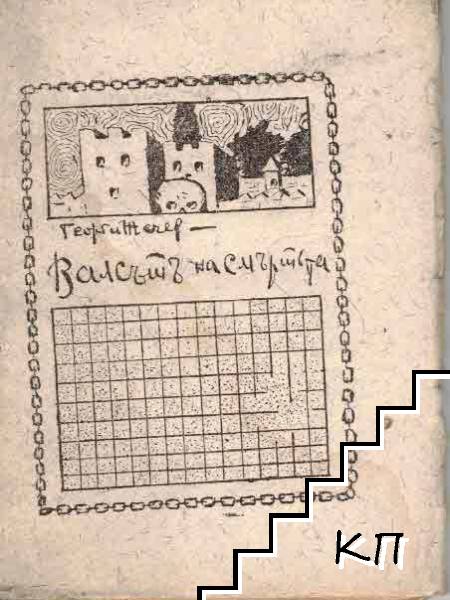 Георги Жечев
Валсътъ на смъртьта
КП